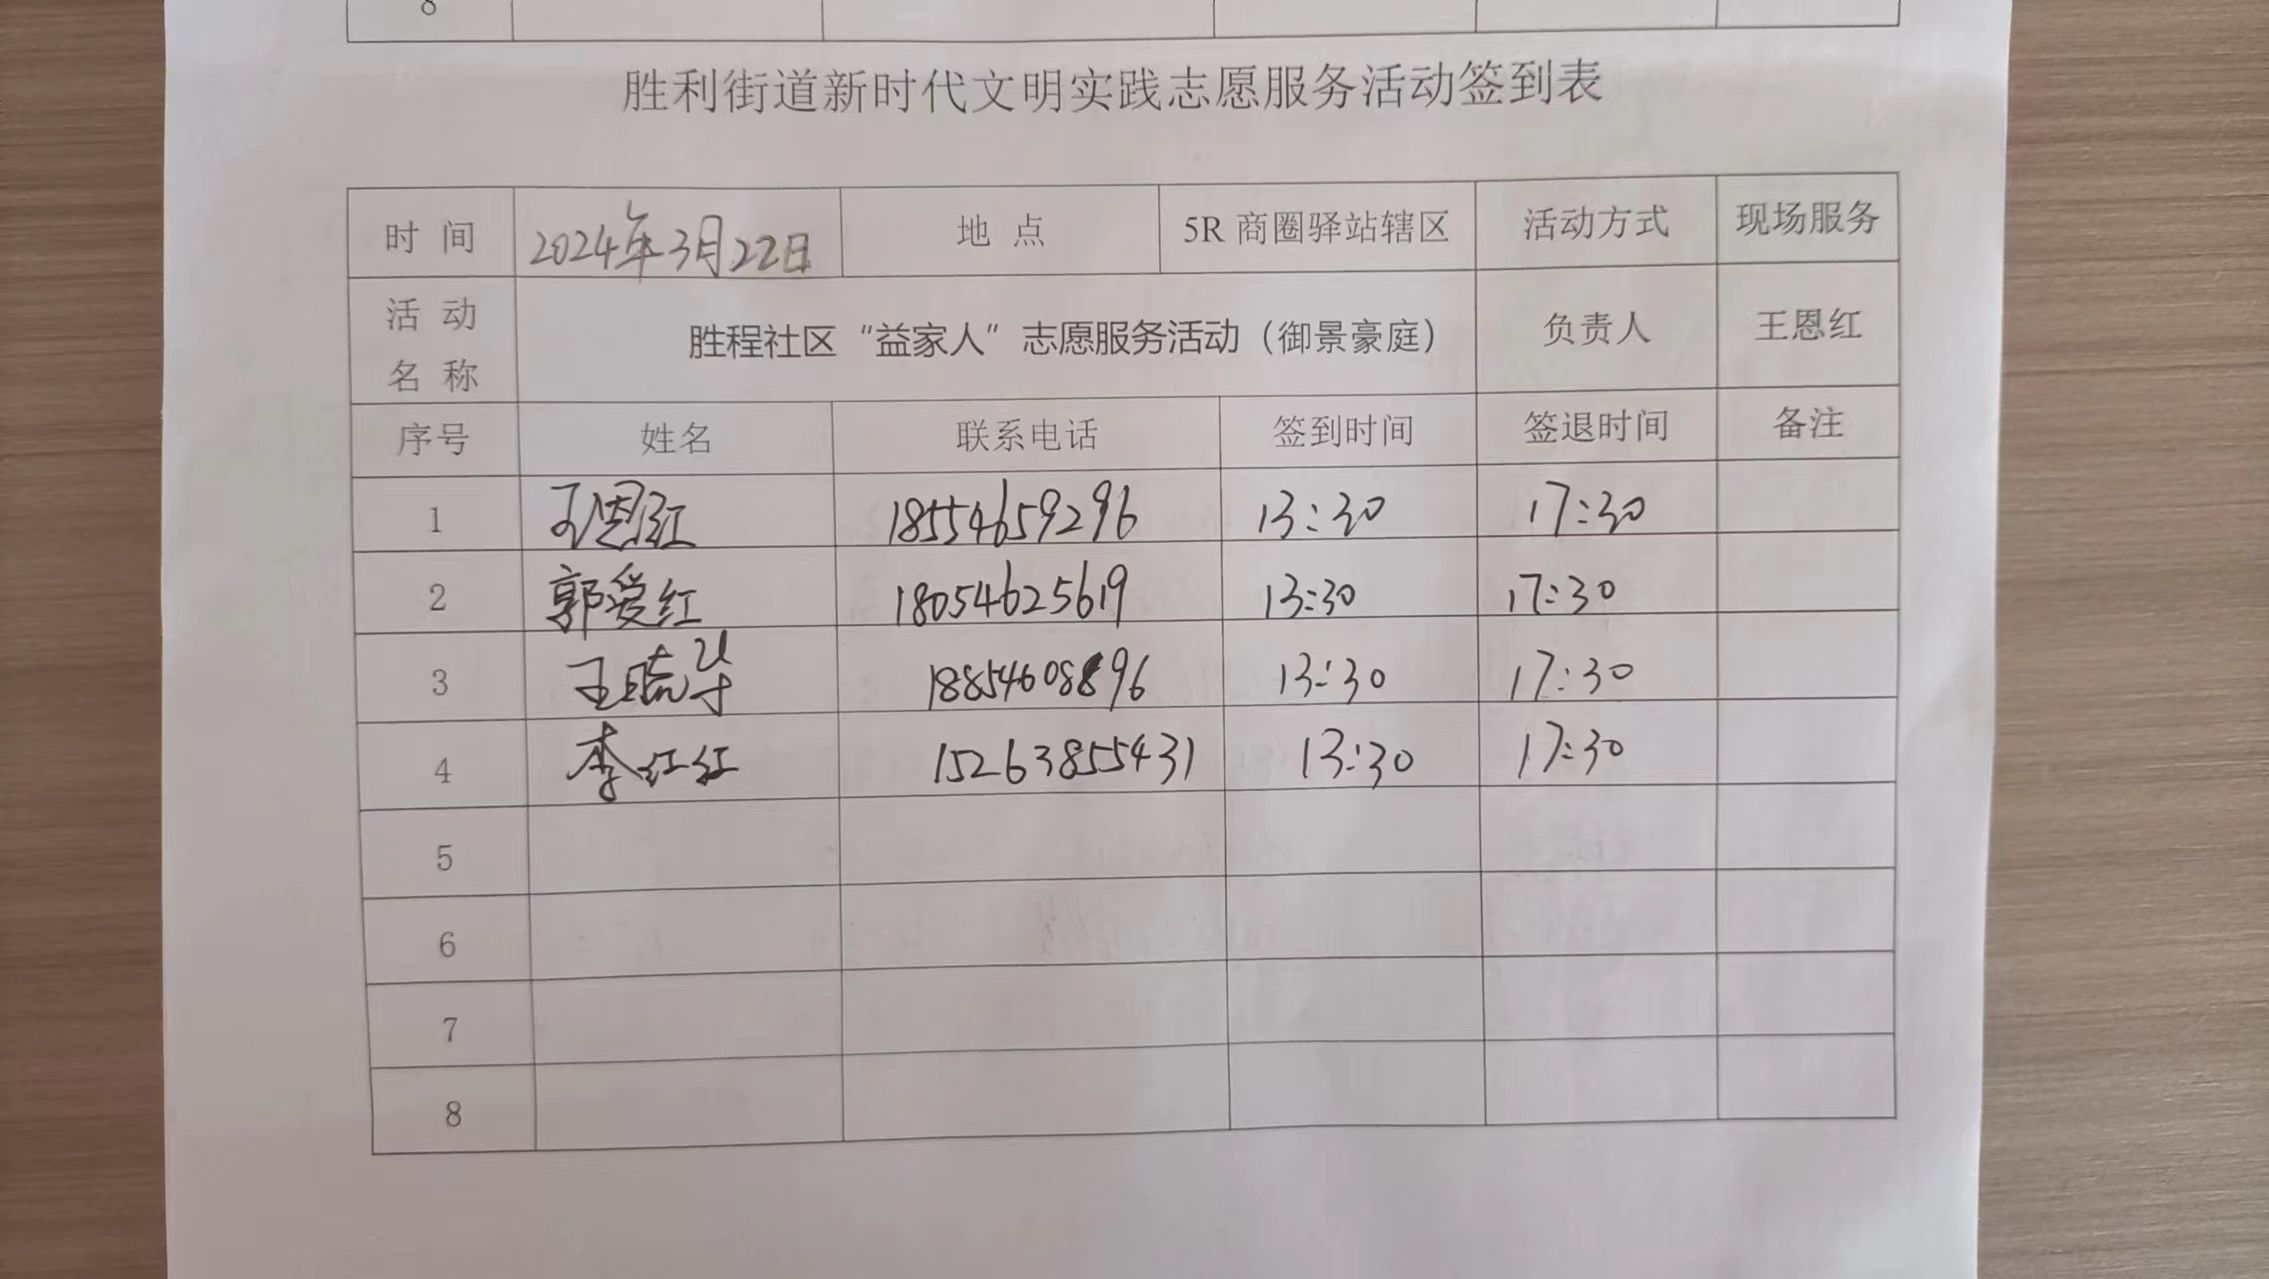 8
胜利街道新时代文明实践志愿服务活动签到表
时 间 2024年3月22日 地 点 5R 商圈驿站辖区 活动方式 现场服务
活 动
名 称 胜程社区“益家人”志愿服务活动（御景豪庭） 负责人 王恩红
序号 姓名 联系电话 签到时间 签退时间 备注
1 王恩红 18554659296 13:30 17:30
2 郭爱红 18054625619 13:30 17:30
3 王晓华 18854608896 13:30 17:30
4 李红红 15263855431 13:30 17:30
5
6
7
8